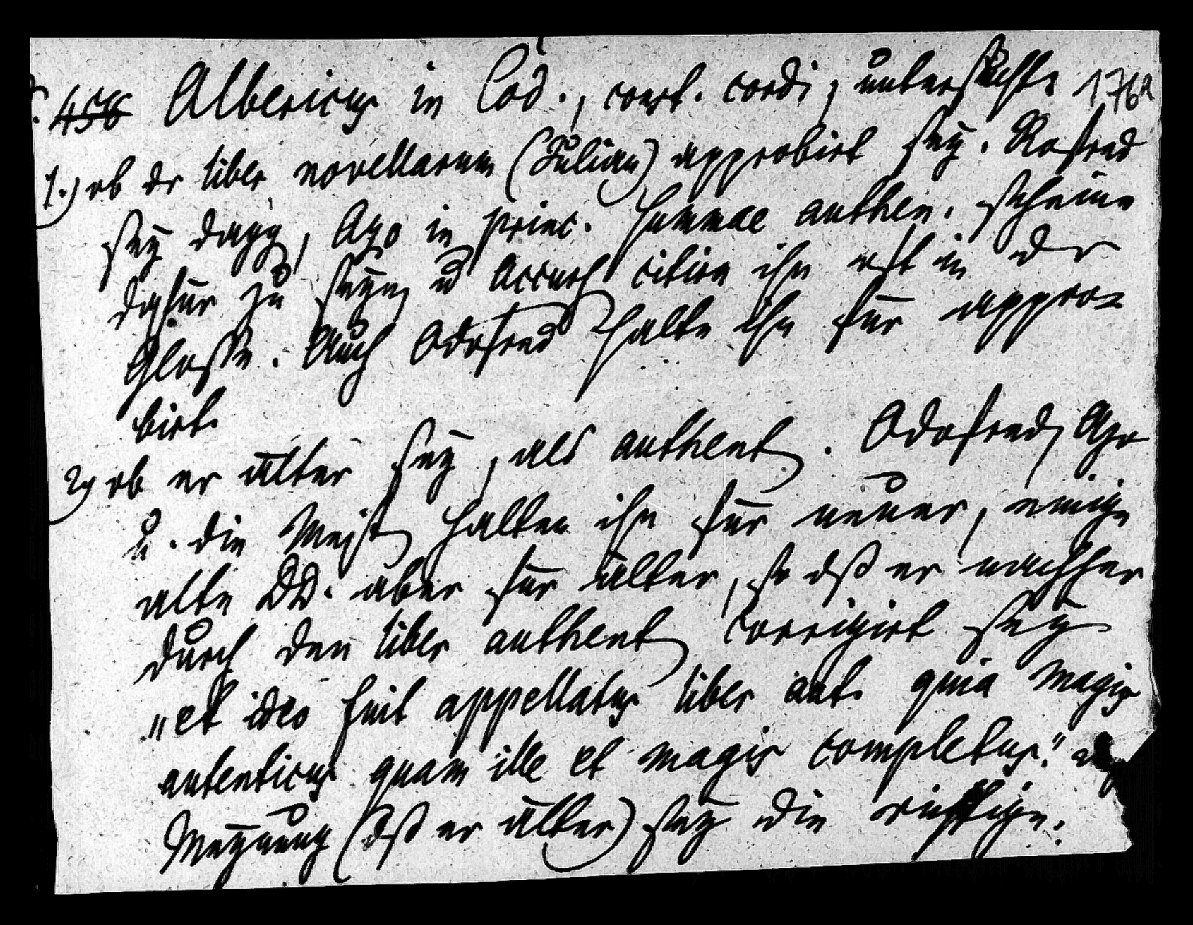 456 Albericus in Cod., const. cordi, untersuchte 176a
1.) ob dr liber novellarum (Julian) approbirt sey. Rofred
sey dagg, Azo in princ. Summae authen. scheine
dafür zu seyn, u Accurs citire ihn oft in dr
Glosse. Auch Odofred halte ihn für appro-
birt.
2) ob er älter sey, als authent. Odofred, Azo
u. die Meist halten ihn für neuer, einige
alte DD. aber für älter, so dß er nachher
durch den liber authent corrigirt sey
"et ideo fuit appellatus liber aut. quia magis
autenticus quam ille et magis completus."
Meynung (dß er älter) sey die richtige.